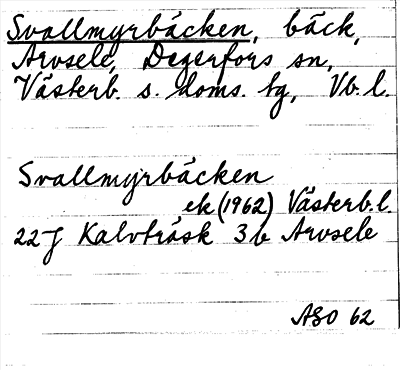 Svallmyrbäcken, bäck,
Arvsele, Degerfors sn,
Västerb. s. doms. tg, Vb. l.
Svallmyrbäcken
ek (1962) Västerb. l.
22 J Kalvträsk 3 b Arvsele
ASO 62